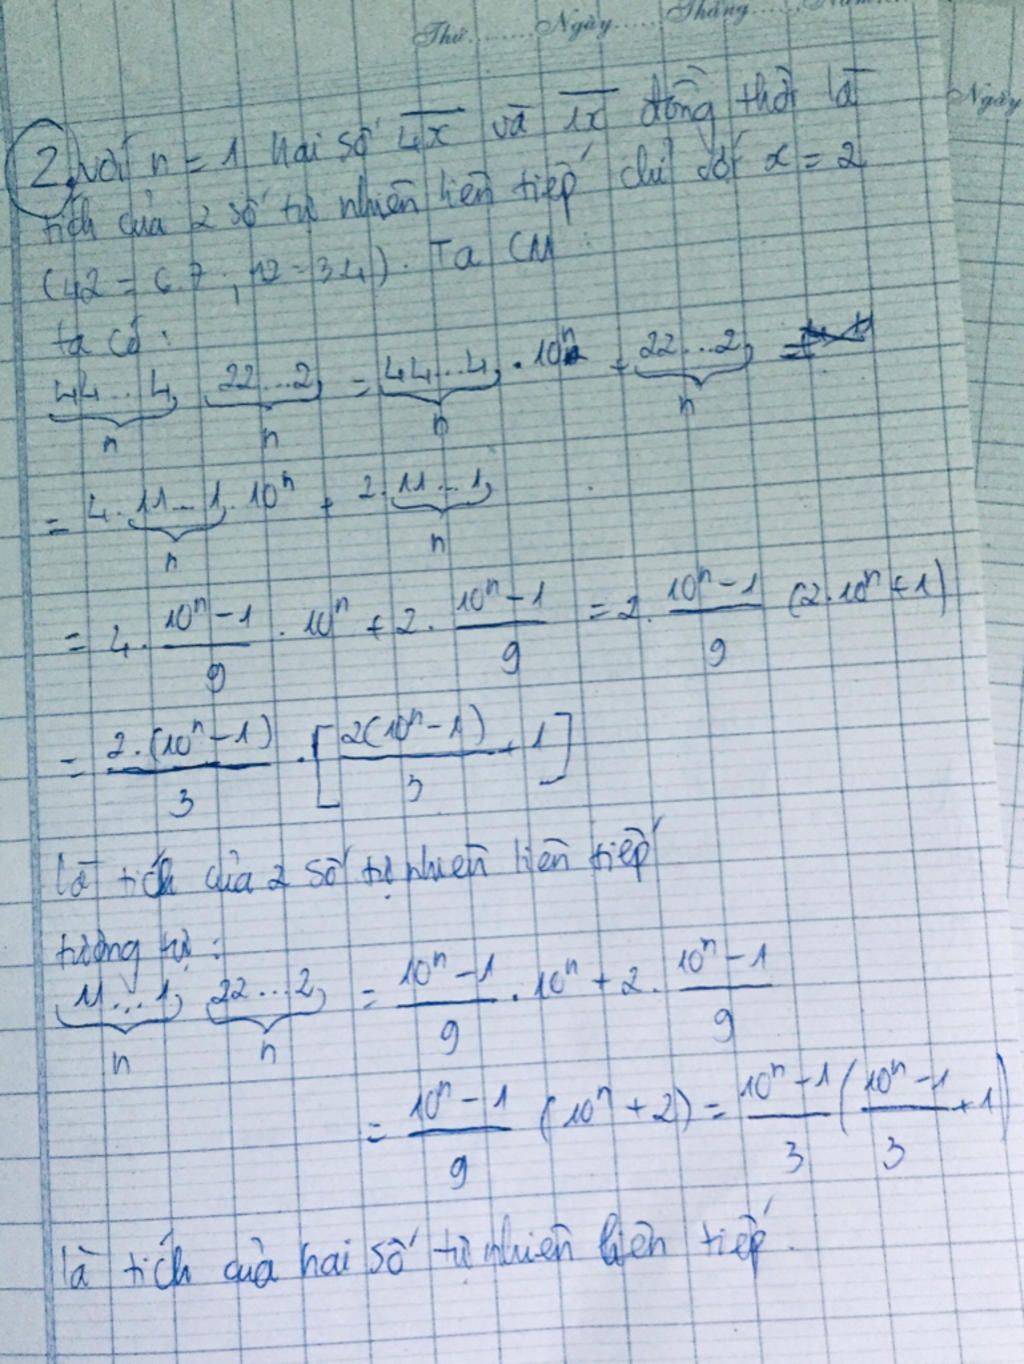 Thứ.........Ngày......Tháng......Năm....
Ngày
2, Với n = 1 hai số 4x̅ và 1x̅ đồng thời là
tích của 2 số tự nhiên liên tiếp chỉ với x = 2
(42 = 6.7 ; 12 = 3.4). Ta CM
ta có :
44...4, 22...2, = 44...4, . 10ⁿ + 22...2, =
n n n n
= 4. 11...1, . 10ⁿ + 2. 11...1,
n n
= 4. (10ⁿ - 1)/9 . 10ⁿ + 2. (10ⁿ - 1)/9 = 2. (10ⁿ - 1)/9 (2.10ⁿ + 1)
= 2.(10ⁿ - 1)/3 . [2(10ⁿ - 1)/3 + 1]
là tích của 2 số tự nhiên liên tiếp
tương tự :
11...1, 22...2, = (10ⁿ - 1)/9 . 10ⁿ + 2. (10ⁿ - 1)/9
n n
= (10ⁿ - 1)/9 (10ⁿ + 2) = (10ⁿ - 1)/3 ((10ⁿ - 1)/3 + 1)
là tích của hai số tự nhiên liên tiếp.